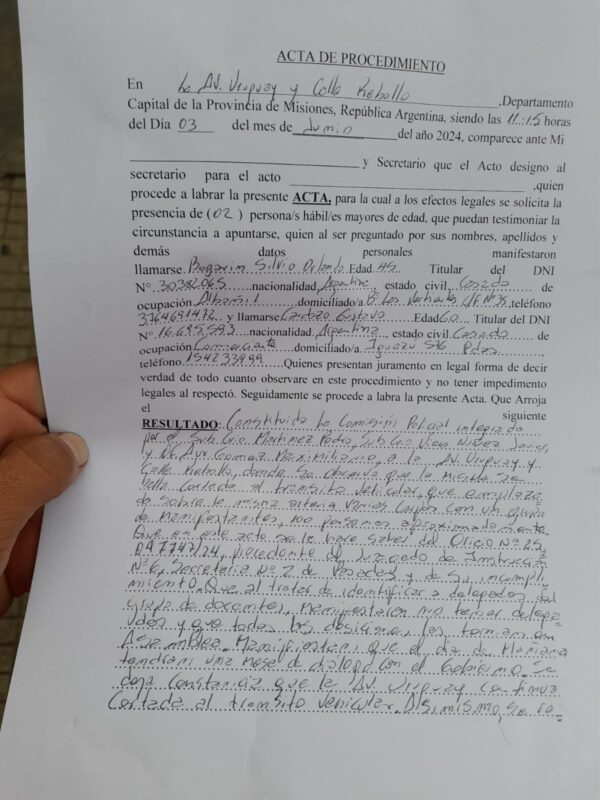 ACTA DE PROCEDIMIENTO
En La AV. Uruguay y Calle Rebollo, Departamento
Capital de la Provincia de Misiones, República Argentina, siendo las 11:15 horas
del Día 03 del mes de Junio del año 2024, comparece ante Mi
y Secretario que el Acto designo al
secretario para el acto ,quien
procede a labrar la presente ACTA, para la cual a los efectos legales se solicita la
presencia de (02) persona/s hábil/es mayores de edad, que puedan testimoniar la
circunstancia a apuntarse, quien al ser preguntado por sus nombres, apellidos y
demás datos personales manifestaron
llamarse Bogarin Silvio Orlando Edad 45. Titular del DNI
N° 30382065 nacionalidad Argentino, estado civil Casado
ocupación Albañil domiciliado/a B° Los ,teléfono
3764691472 y llamarse Cardozo Gustavo Edad 60. Titular del DNI
N° 16.695.593 nacionalidad Argentina, estado civil Casado
ocupación Comerciante domiciliado/a Iguazu 576 Pdas,
teléfono 154233999 Quienes presentan juramento en legal forma de decir
verdad de todo cuanto observare en este procedimiento y no tener impedimento
legales al respectó. Seguidamente se procede a labra la presente Acta. Que Arroja
el siguiente
RESULTADO: Constituida la Comisión Policial integrada
por el Sub Crio. Martinez Pedro, Sub Crio Viera Nuñez Javier,
y Of. Ayte Gomez Maximiliano, a la AV. Uruguay y
Calle Rebollo, donde se observa que la misma se
halla cortada al transito vehicular, que emplaza
do sobre la misma arteria varias carpas con un grupo
de Manifestantes, 100 personas aproximadamente.
Que en este acto se le hace saber del Oficio N° 25,
7747/24, procedente del Juzgado de Instrucción
N° 6, Secretaria N° 2 de Posadas y de su incumpli
miento. Que al tratar de identificar a delegados del
grupo de docentes, manifestaron no tener delega
dos y que todas las decisiones las toman en
Asamblea. Manifiestan que el dia de Mañana
tendrian una mesa de dialogo con el Gobierno. Se
deja constancia que la AV. Uruguay continua
Cortada al transito vehicular. Asimismo, se